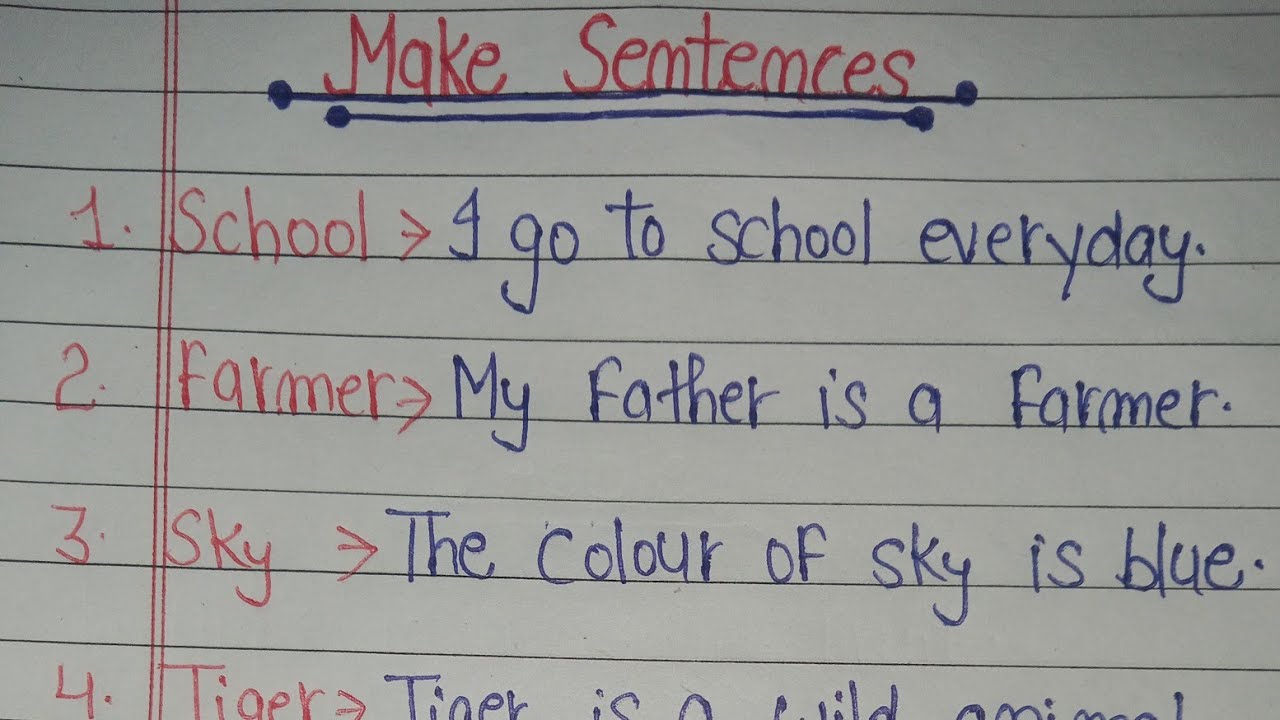 Make Sentences
1. School > I go to school everyday.
2. Farmer > My Father is a Farmer.
3. Sky > The colour of sky is blue.
4. Tiger > Tiger is a wild animal